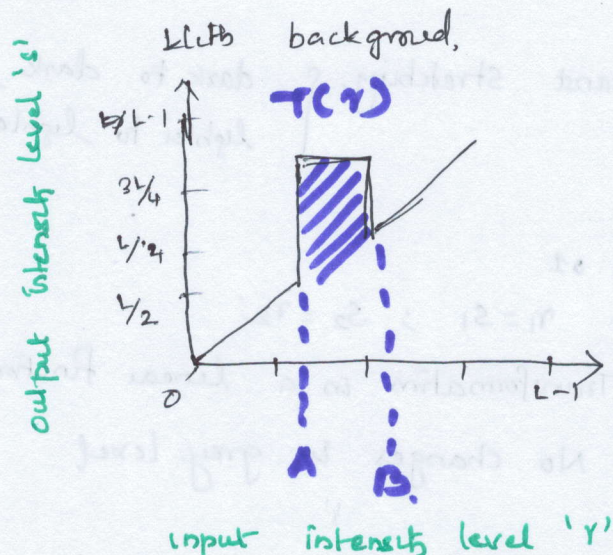 With background.
T(r)
L-1
3L/4
L/4
L/2
0
L-1
A
B
output intensity level 's'
input intensity level 'r'